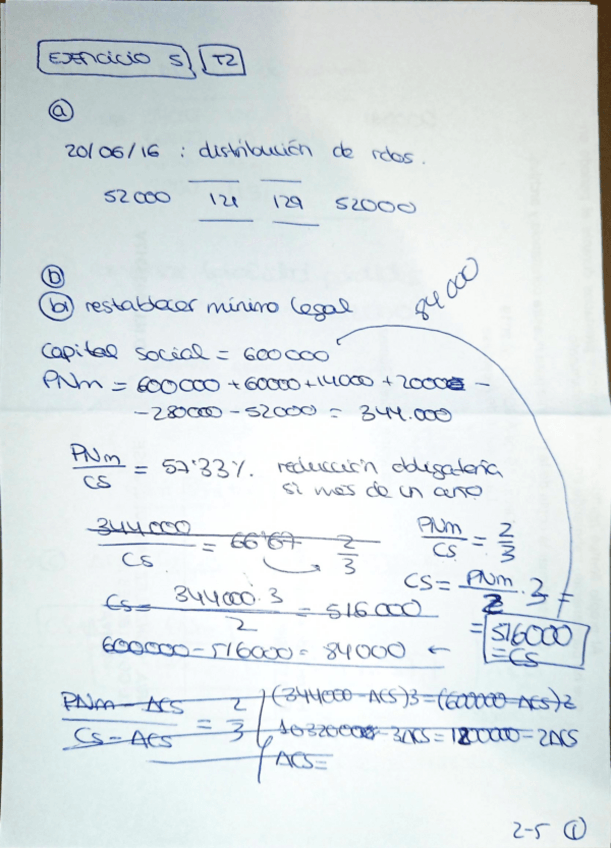 Ejercicio 5 T2
a
20/06/16 : distribución de rdos.
52000 121 129 52000
b
b1 restablecer mínimo legal
84000
Capital social = 600000
PNm = 600000 + 60000 + 14000 + 2000 -
- 280000 - 52000 = 344.000
PNm/CS = 57'33%. reducción obligatoria
si más de un año
344000/CS = 66'67 2/3
PNm/CS = 2/3
CS = PNm/2 · 3 =
CS = 344000·3/2 = 516000
= 516000
= CS
600000 - 516000 = 84000 ←
PNm - ΔCS/CS - ΔCS = 2/3
(344000 - ΔCS)3 = (600000 - ΔCS)2
1032000 - 3ΔCS = 1200000 - 2ΔCS
ΔCS =
2-5 1